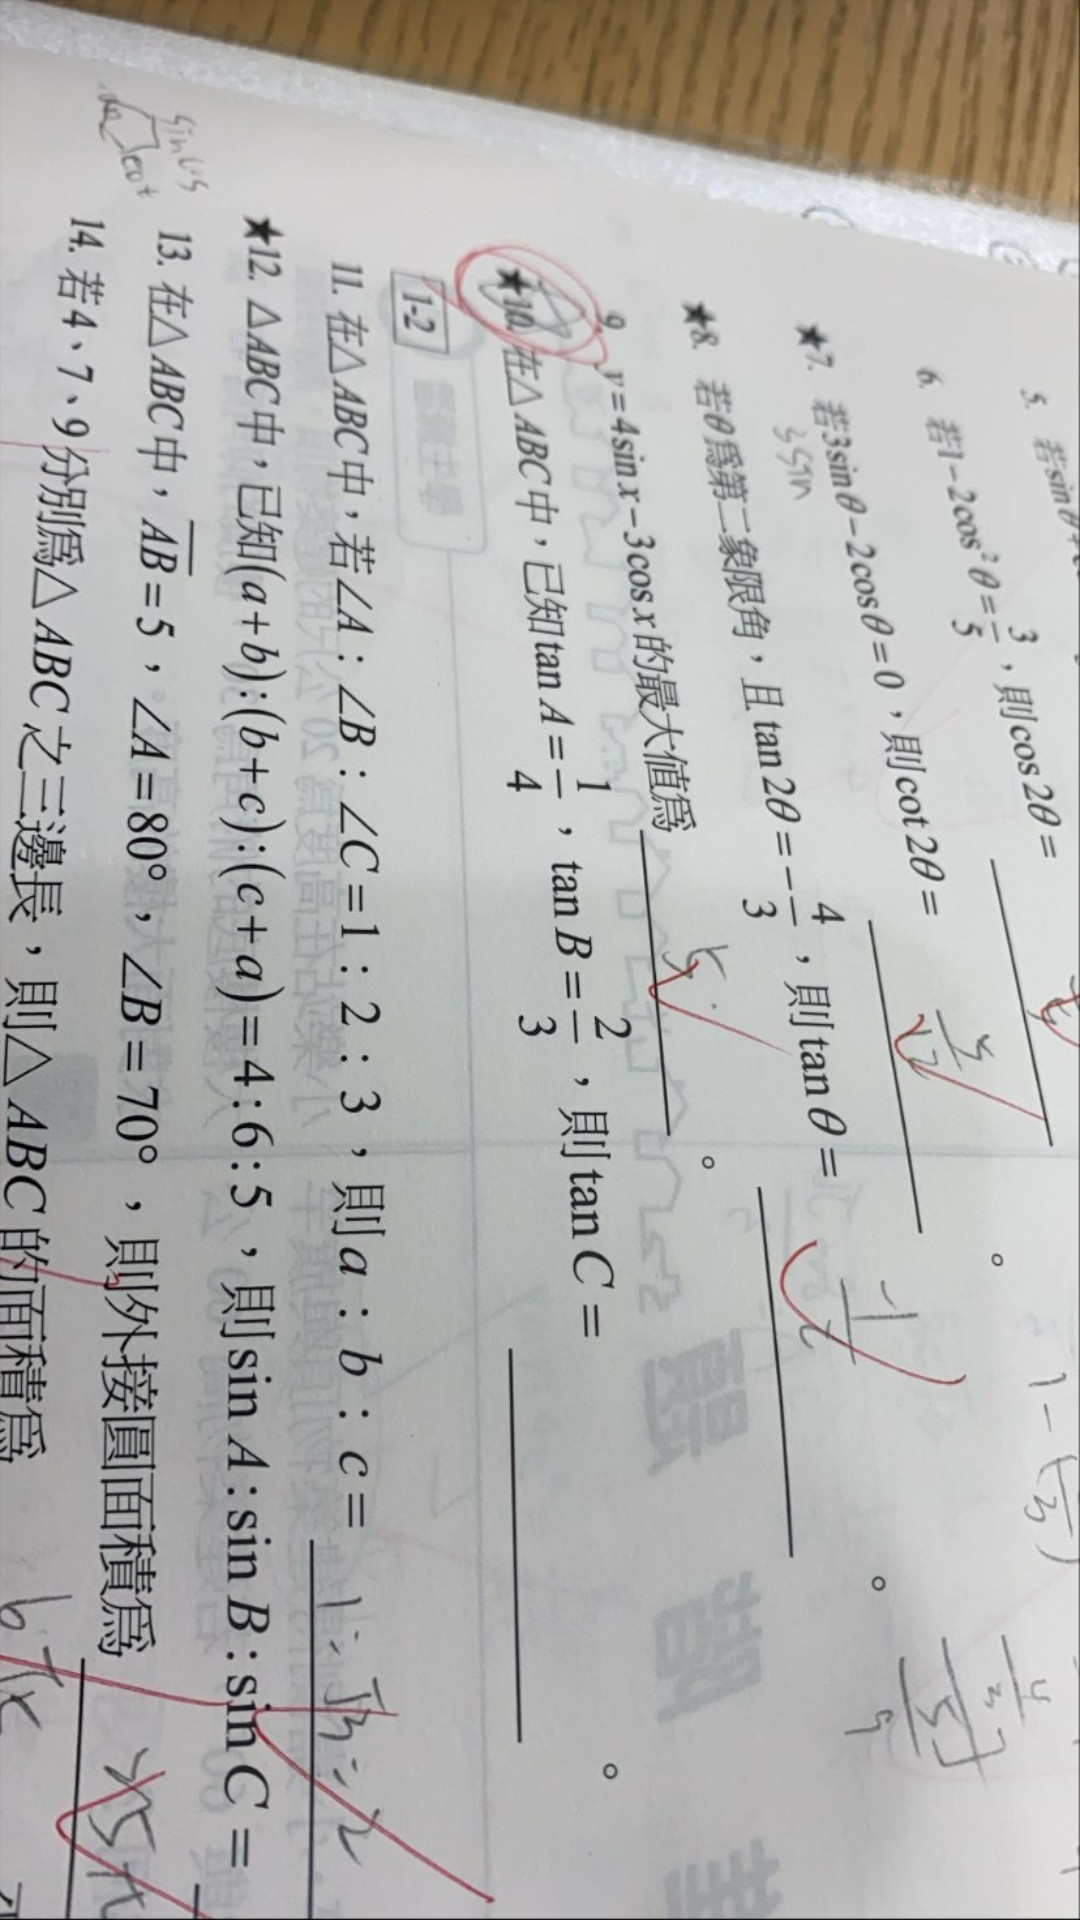 5. 若sinθ+
6. 若1-2cos²θ=3/5，則cos2θ=
★7. 若3sinθ-2cosθ=0，則cot2θ= 5/12 。
3sin
★8. 若θ為第二象限角，且tan2θ=-4/3，則tanθ= 。
9. y=4sinx-3cosx的最大值為 5 。
★10. 在△ABC中，已知tanA=1/4，tanB=2/3，則tanC= 。
1-2
11. 在△ABC中，若∠A：∠B：∠C=1：2：3，則a：b：c= 1:√3:2
★12. △ABC中，已知(a+b):(b+c):(c+a)=4:6:5，則sinA:sinB:sinC=
13. 在△ABC中，AB=5，∠A=80°，∠B=70°，則外接圓面積為 25π
14. 若4、7、9分別為△ABC之三邊長，則△ABC的面積為